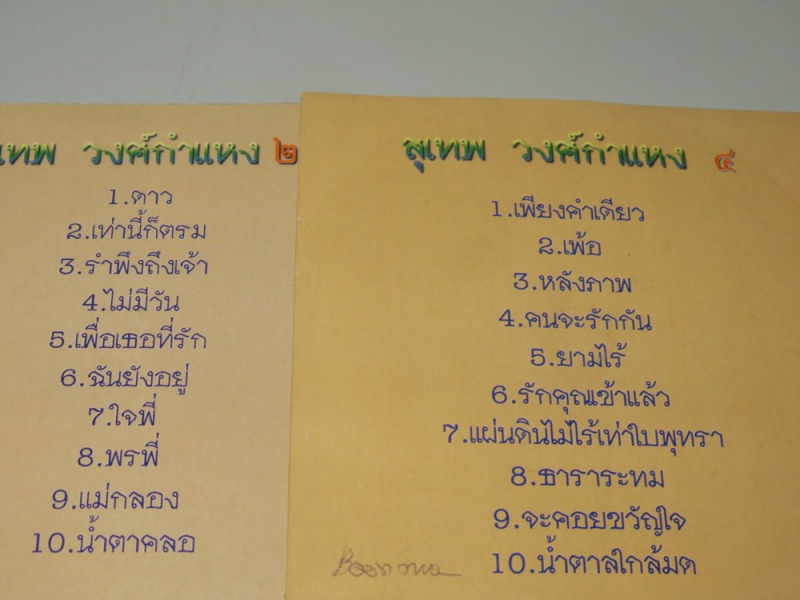 เทพ วงศ์กำแหง ๒
1.ดาว
2.เท่านี้ก็ตรม
3.รำพึงถึงเจ้า
4.ไม่มีวัน
5.เพื่อเธอที่รัก
6.ฉันยังอยู่
7.ใจพี่
8.พรพี่
9.แม่กลอง
10.น้ำตาคลอ
สุเทพ วงศ์กำแหง ๔
1.เพียงคำเดียว
2.เพ้อ
3.หลังภาพ
4.คนจะรักกัน
5.ยามไร้
6.รักคุณเข้าแล้ว
7.แผ่นดินไม่ไร้เท่าใบพุทรา
8.ธาราระทม
9.จะคอยขวัญใจ
10.น้ำตาลใกล้มด